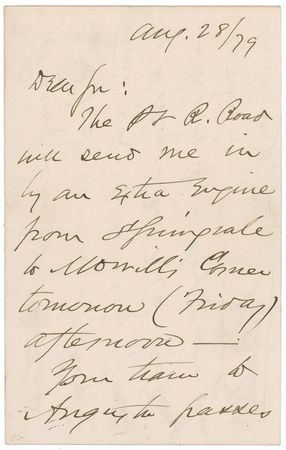 Aug. 28/79
Dear Sir:
The P & R. Road
will send me in
by an Extra Engine
from Springvale
to Morrill's Corner
tomorrow (Friday)
afternoon —.
Your train to
Augusta passes